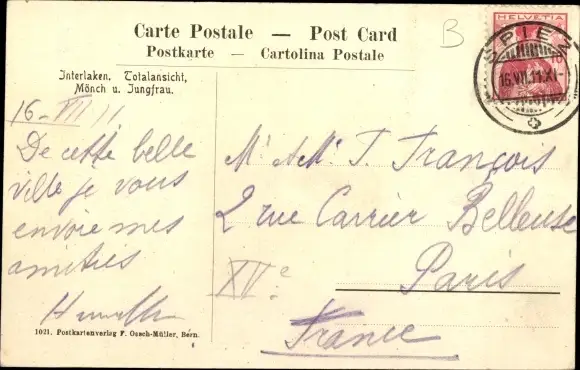 Carte Postale — Post Card
Postkarte — Cartolina Postale
B
HELVETIA
10
SPIEZ
16.VII.11.XI-
Interlaken. Totalansicht,
Mönch u. Jungfrau.
16-VII 11
De cette belle
ville je vous
envoie mes
amitiés
Mr & Me T. François
2 rue Carrier Belleuse
XVe
Paris
France
1021. Postkartenverlag F. Oesch-Müller, Bern.